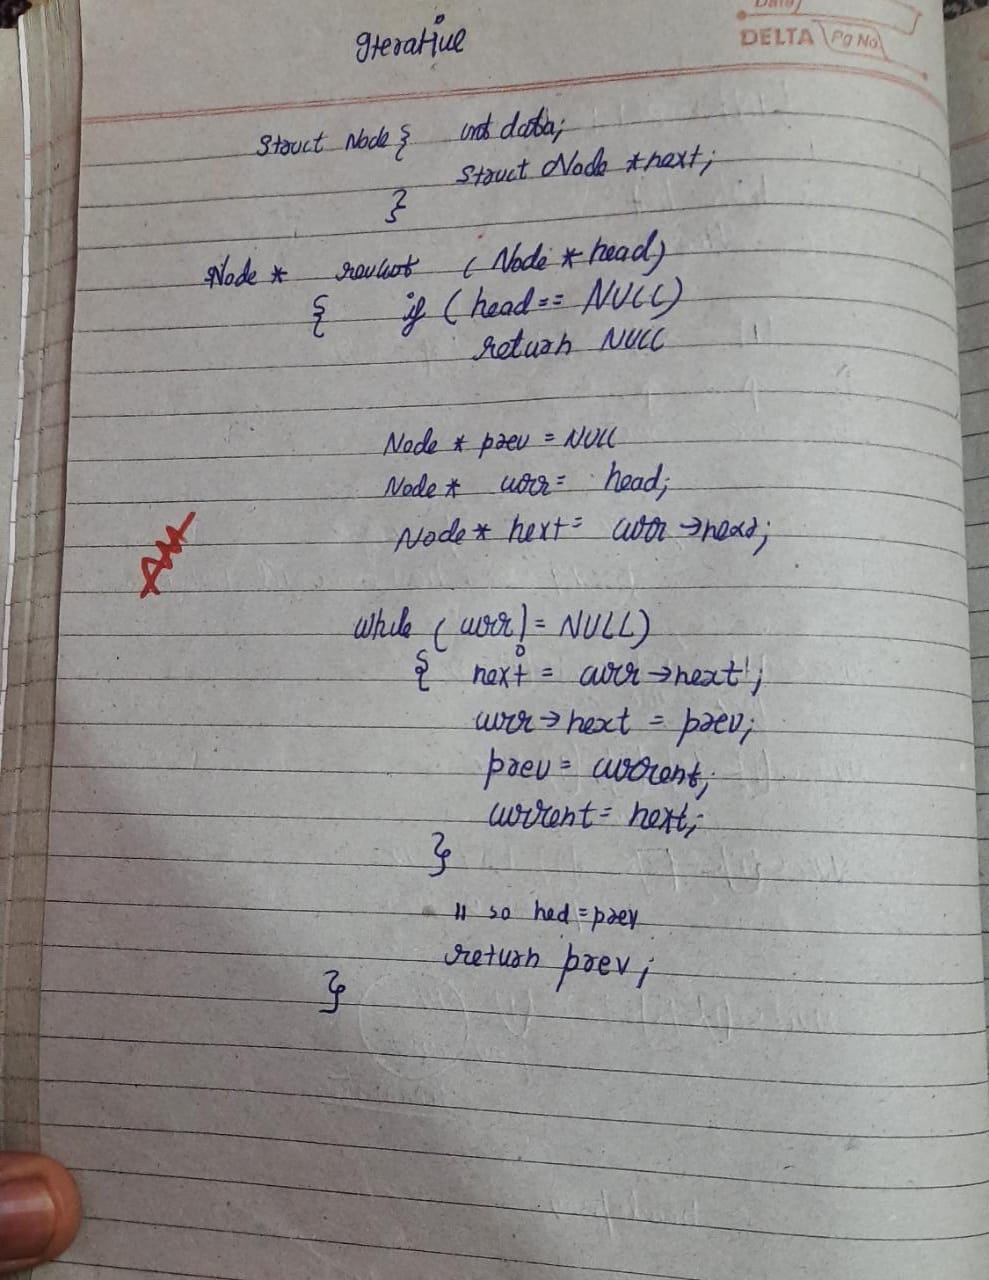 Date
DELTA Pg No
Iterative
Struct Node { int data;
Struct Node *next;
}
Node * (Node * head)
{ if (head == NULL)
return NULL
Node * prev = NULL
Node * curr = head;
Node * next = curr → next;
while ( curr != NULL)
{ next = curr → next;
curr → next = prev;
prev = current;
current = next;
}
// so hed = prev
return prev;
}